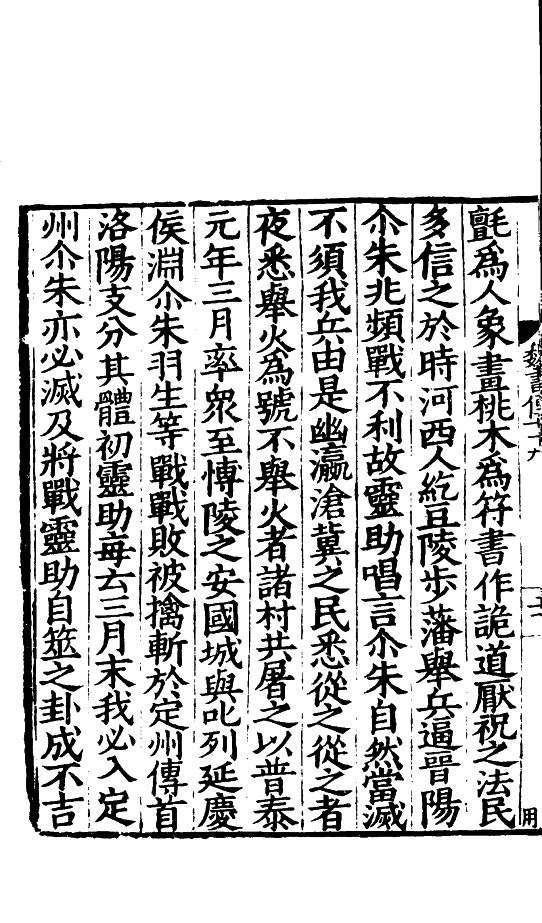 魏書傳七十九
氈爲人象畫桃木爲符書作詭道厭祝之法民
多信之於時河西人紇豆陵步藩舉兵逼晉陽
尒朱兆頻戰不利故靈助唱言尒朱自然當滅
不須我兵由是幽瀛滄冀之民悉從之從之者
夜悉舉火爲號不舉火者諸村共屠之以普泰
元年三月率衆至博陵之安國城與叱列延慶
侯淵尒朱羽生等戰戰敗被擒斬於定州傳首
洛陽支分其體初靈助每云三月末我必入定
州尒朱亦必滅及將戰靈助自筮之卦成不吉
用